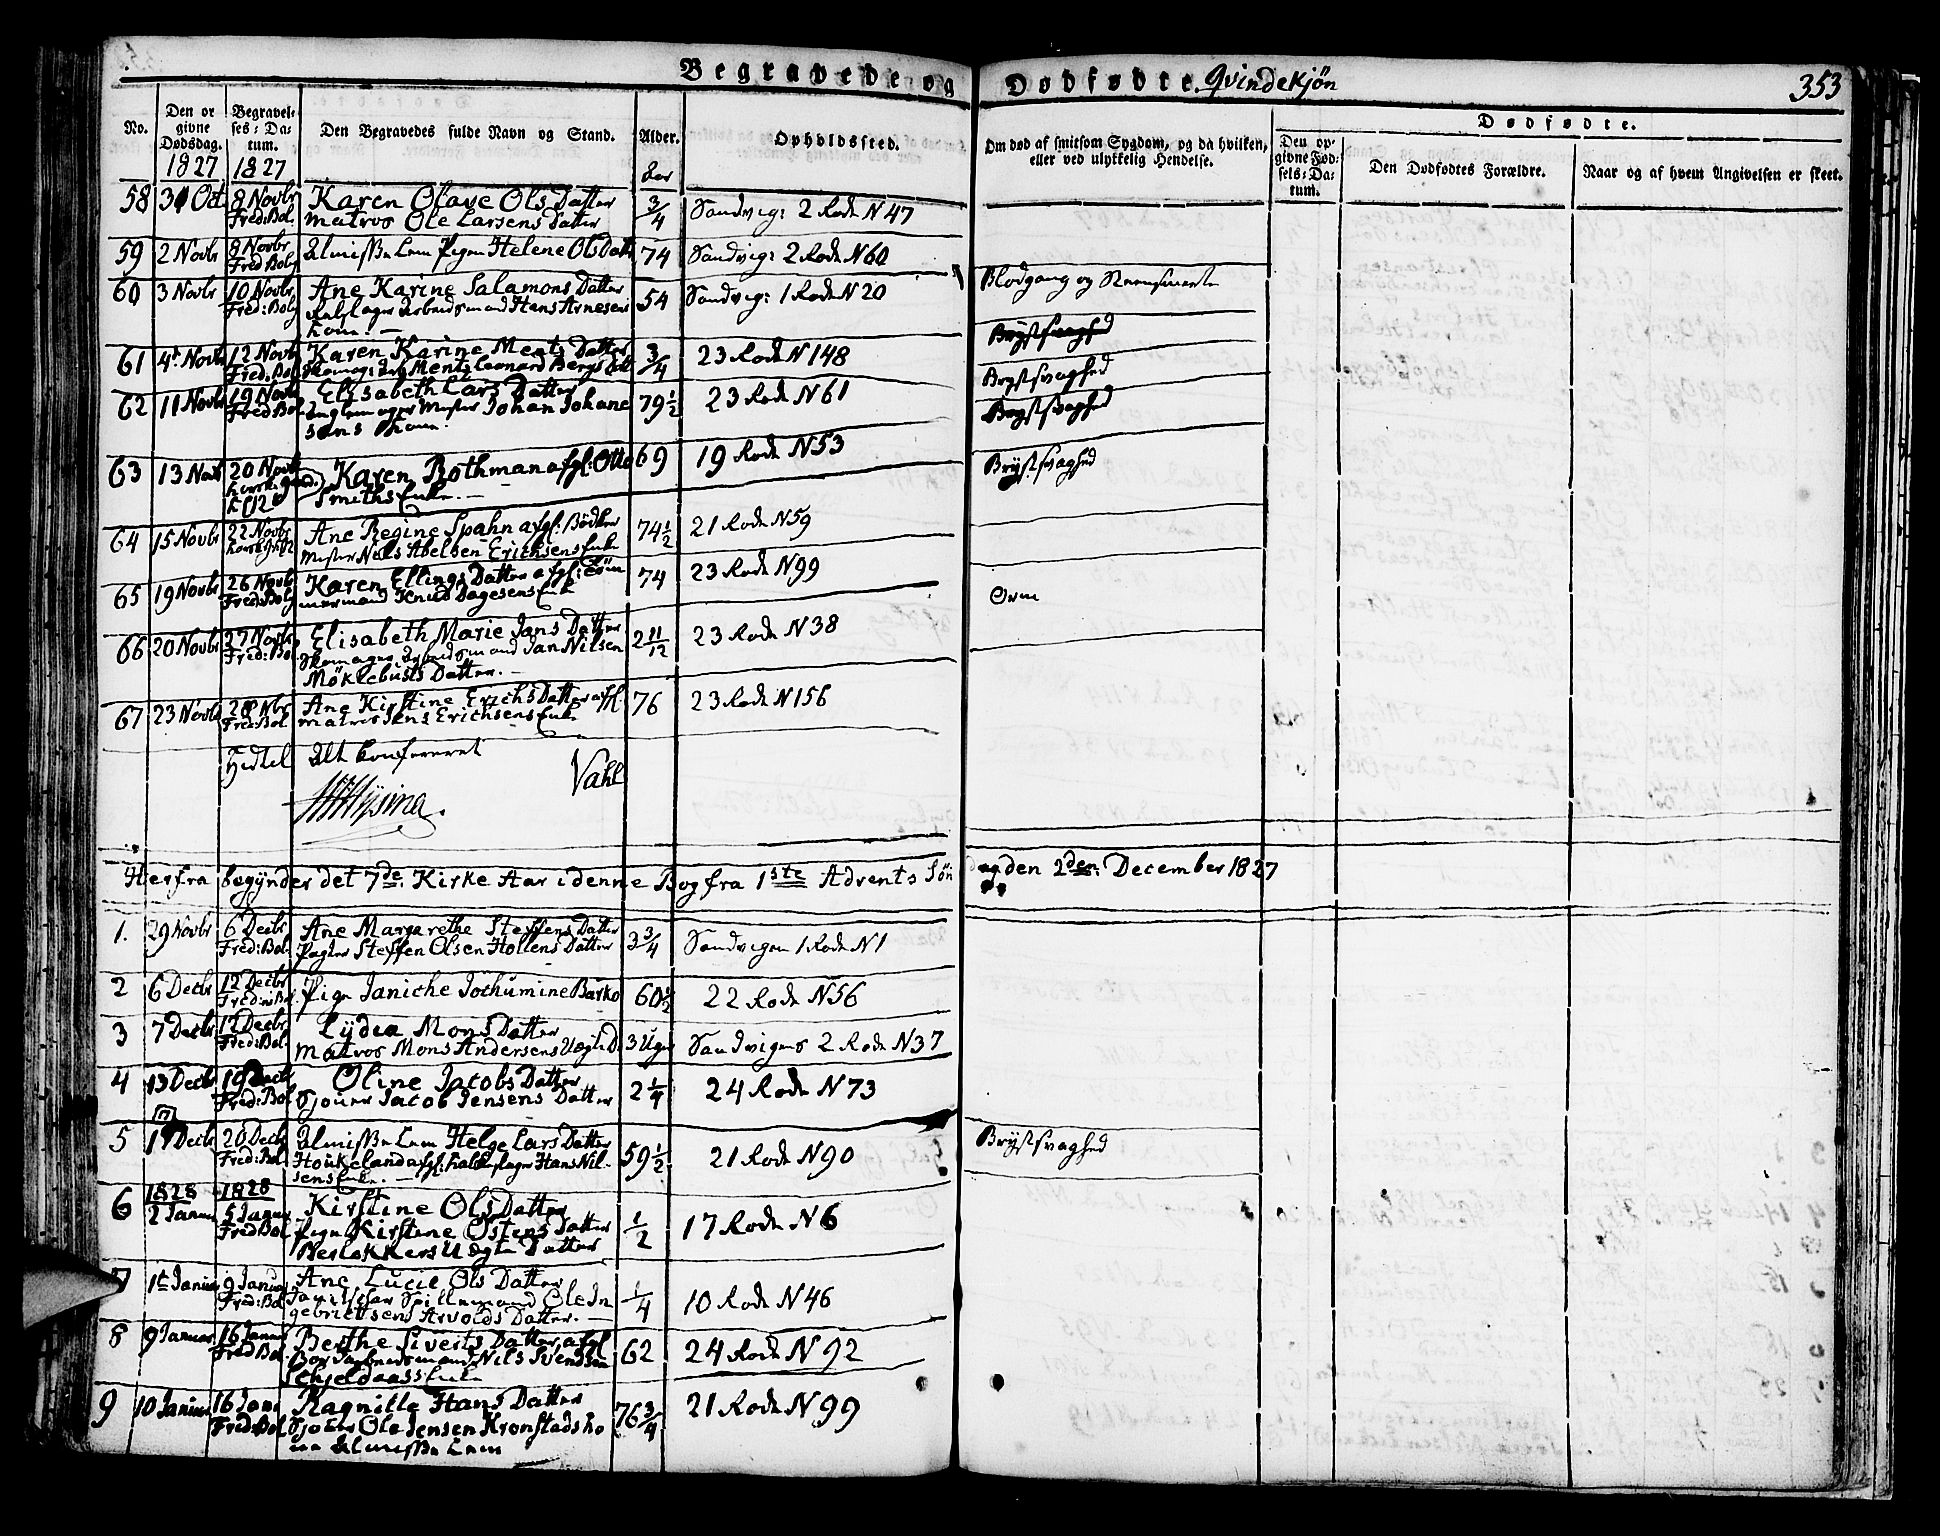 Begravede og Dødfødte. Qvindekjøn
353
No.
Den opgivne Dødsdag.
Begravelses-Datum.
Den Begravedes fulde Navn og Stand.
Alder.
Opholdssted.
Om død af smitsom Sygdom, og da hvilken, eller ved ulykkelig Hendelse.
Dødfødte.
Den opgivne Fødsels-Datum.
Den Dødfødtes Forældre.
Naar og af hvem Angivelsen er skeet.
1827 1827 Aar
58 30 Oct 8 Novbr Karen Olave Ols Datter 3/4 Sandvig: 2 Rode N 47
Fred: Bol. Matros Ole Larsens Datter
59 2 Novbr 8 Novbr Almisse Lem Pigen Helene Ols Datter 74 Sandvig: 2 Rode N 60
Fred: Bolg
60 3 Novbr 10 Novbr Ane Karine Salamons Datter 54 Sandvig: 1 Rode N 20 Blodgang og
Fred: Bolg Arbeidsmand Hans Arnesens
Kone. —
61 4de Novbr 12 Novbr Karen Karine Ments Datter 3/4 23 Rode N 148 Brystsvaghed
Fred: Bol Ments Leonard Bergs Datt
62 11 Novbr 19 Novbr Elisabeth Lars Datter 79 1/2 23 Rode N 61 Brystsvaghed
Fred: Bol Mester Johan Johane
sens Kone. Brystsvaghed
63 13 Novbr 20 Novbr Karen Rothman afgl: Otto 69 19 Rode N 53 Brystsvaghed
Smiths Enke. —
64 15 Novbr 22 Novbr Ane Regine Spahn afgl: Bødker 74 1/2 21 Rode N 59
Mester Nils Abelsen Erichsens Enke
65 19 Novbr 26 Novbr Karen Ellings Datter afgl: Tøm 74 23 Rode N 99
Fred: Bolg mermand Knud Dagesens Enke Orm
66 20 Novbr 27 Novbr Elisabeth Marie Jans Datter 2 11/12 23 Rode N 38
Fred: Bol. Arbeidsmand Jan Nilsen
Møklebusts Datter. —
67 23 Novbr 28 Nbr Ane Kirstine Erichs Datter afgl. 76 23 Rode N 156
Fred: Bol Matros Jens Erichsens Enke
Hidtil Alt konfereret
Vahl
Herfra begynder det 7de: Kirke Aar i denne Bog fra 1ste Advents Søndag den 2den: December 1827
1. 29 Novbr 6 Decbr Ane Margarethe Steffens Datter 3 3/4 Sandvigen 1 Rode N 1
Fred: Bol. Steffen Olsen Hollens Datter
2 6 Decbr 12 Decbr Pige Janiche Jochumine Barko 60 1/2 22 Rode N 56
Fred: Bol.
3 7 Decbr 12 Decbr Lydea Mons Datter 3 Uger Sandvigens 2 Rode N 37
Fred: Bol. Matros Mons Andersens Uægte D.
4 13 Decbr 19 Decbr Oline Jacobs Datter 2 1/4 24 Rode N 73
Fred: Bol Sjouer Jacob Jensens Datter
5 17 Decbr 20 Decb Almisse Lem Helge Lars Datter 59 1/2 21 Rode N 90 Brystsvaghed
Fred: Bol Houkeland afgl: Hans Nil-
sens Enke. —
1828 1828
6 2 Januar 5 Januar Kirstine Ols Datter 1/2 17 Rode N 6
Fred: Bol Pigen Kirstine Ostens Datter
Uægte Datter
7 1te Januar 9 Januar Ane Lucie Ols Datter 1/4 10 Rode N 46
Fred: Bol Spillemand Ole In
gebrietsens Arvolds Datter. —
8 9 Januar 16 Januar Berthe Siverts Datter afgl 62 24 Rode N 92
Fred: Bol Arbeidsmand Nils Svendsen
Schjeldaass Enke
9 10 Januar 16 Janu Ragnille Hans Datter 76 3/4 21 Rode N 99
Fred: Bol Sjouer Ole Jensen Kronstads Ko
ne Almisse Lem